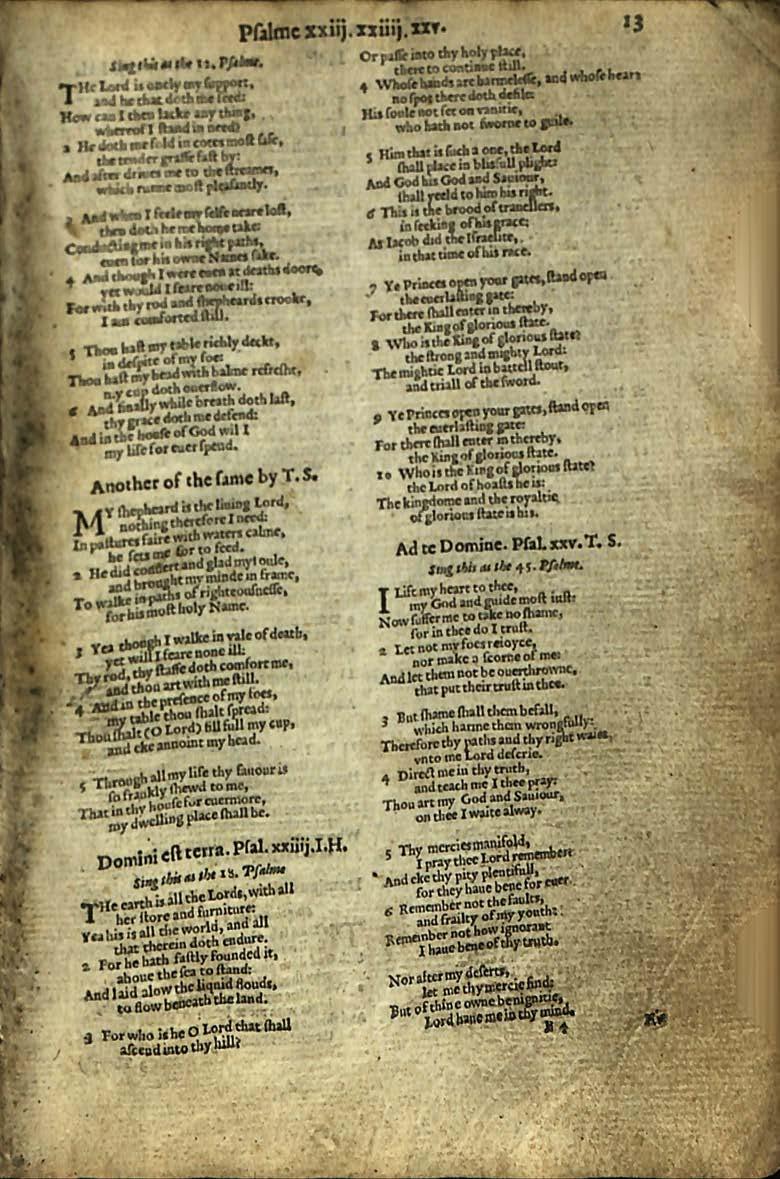 Psalme xxiij. xxiiij. xxv.
13
Sing this as the 12. Psalme.
THe Lord is onely my support,
and he that doth me feed:
How can I then lacke any thing,
whereof I stand in need?
2 He doth me fold in cotes most safe,
the tender grasse fast by:
And after driues me to the streames,
which runne most pleasantly.
3 And when I feele my selfe neare lost,
then doth he me home take:
Conducting me in his right paths,
euen for his owne Names sake.
4 And though I were euen at deaths doore,
yet would I feare none ill:
For with thy rod and shepheards crooke,
I am comforted still.
5 Thou hast my table richly deckt,
in despite of my foe:
Thou hast my head with balme refresht,
my cup doth ouerflow.
6 And finally while breath doth last,
thy grace doth me defend:
And in the house of God wil I
my life for euer spend.
Another of the same by T. S.
MY shepheard is the liuing Lord,
nothing therefore I need:
In pastures faire with waters calme,
he sets me for to feed.
2 He did conuert and glad my soule,
and brought my minde in frame,
To walke in paths of righteousnesse,
for his most holy Name.
3 Yea though I walke in vale of death,
yet will I feare none ill:
Thy rod, thy staffe doth comfort me,
and thou art with me still.
4 And in the presence of my foes,
my table thou shalt spread:
Thou shalt (O Lord) fill full my cup,
and eke annoint my head.
5 Through all my life thy fauour is
so frankly shewd to me,
That in thy house for euermore,
my dwelling place shall be.
Domini est terra. Psal. xxiiij. I.H.
Sing this as the 18. Psalme
THe earth is all the Lords, with all
her store and furniture:
Yea his is all the world, and all
that therein doth endure.
2 For he hath fastly founded it,
aboue the sea to stand:
And laid alow the liquid flouds,
to flow beneath the land.
3 For who is he O Lord that shall
ascend into thy hill?
Or passe into thy holy place,
there to continue still.
4 Whose hands are harmelesse, and whose heart
no spot there doth defile:
His soule not set on vanitie,
who hath not sworne to guile.
5 Him that is such a one, the Lord
shall place in blissfull plight:
And God his God and Sauiour,
shall yeeld to him his right.
6 This is the brood of trauellers,
in seeking of his grace:
As Iacob did the Israelite,
in that time of his race.
7 Ye Princes open your gates, stand open
the euerlasting gate:
For there shall enter in thereby,
the King of glorious state.
8 Who is the King of glorious state?
the strong and mighty Lord:
The mightie Lord in battell stout,
and triall of the sword.
9 Ye Princes open your gates, stand open
the euerlasting gate:
For there shall enter in thereby,
the King of glorious state.
10 Who is the King of glorious state?
the Lord of hoasts he is:
The kingdome and the royaltie
of glorious state is his.
Ad te Domine. Psal. xxv. T. S.
Sing this as the 45. Psalme.
I Lift my heart to thee,
my God and guide most iust:
Now suffer me to take no shame,
for in thee do I trust.
2 Let not my foes reioyce,
nor make a scorne of me:
And let them not be ouerthrowne,
that put their trust in thee.
3 But shame shall them befall,
which harme them wrongfully:
Therefore thy paths and thy right waies,
vnto me Lord descrie.
4 Direct me in thy truth,
and teach me I thee pray:
Thou art my God and Sauiour,
on thee I waite alway.
5 Thy mercies manifold,
I pray thee Lord remember:
And eke thy pity plentifull,
for they haue bene for euer.
6 Remember not the faults,
and frailty of my youth:
Remember not how ignorant
I haue bene of thy truth.
Nor after my deserts,
let me thy mercie find:
But of thine owne benignitie,
Lord haue me in thy mind.
B 4